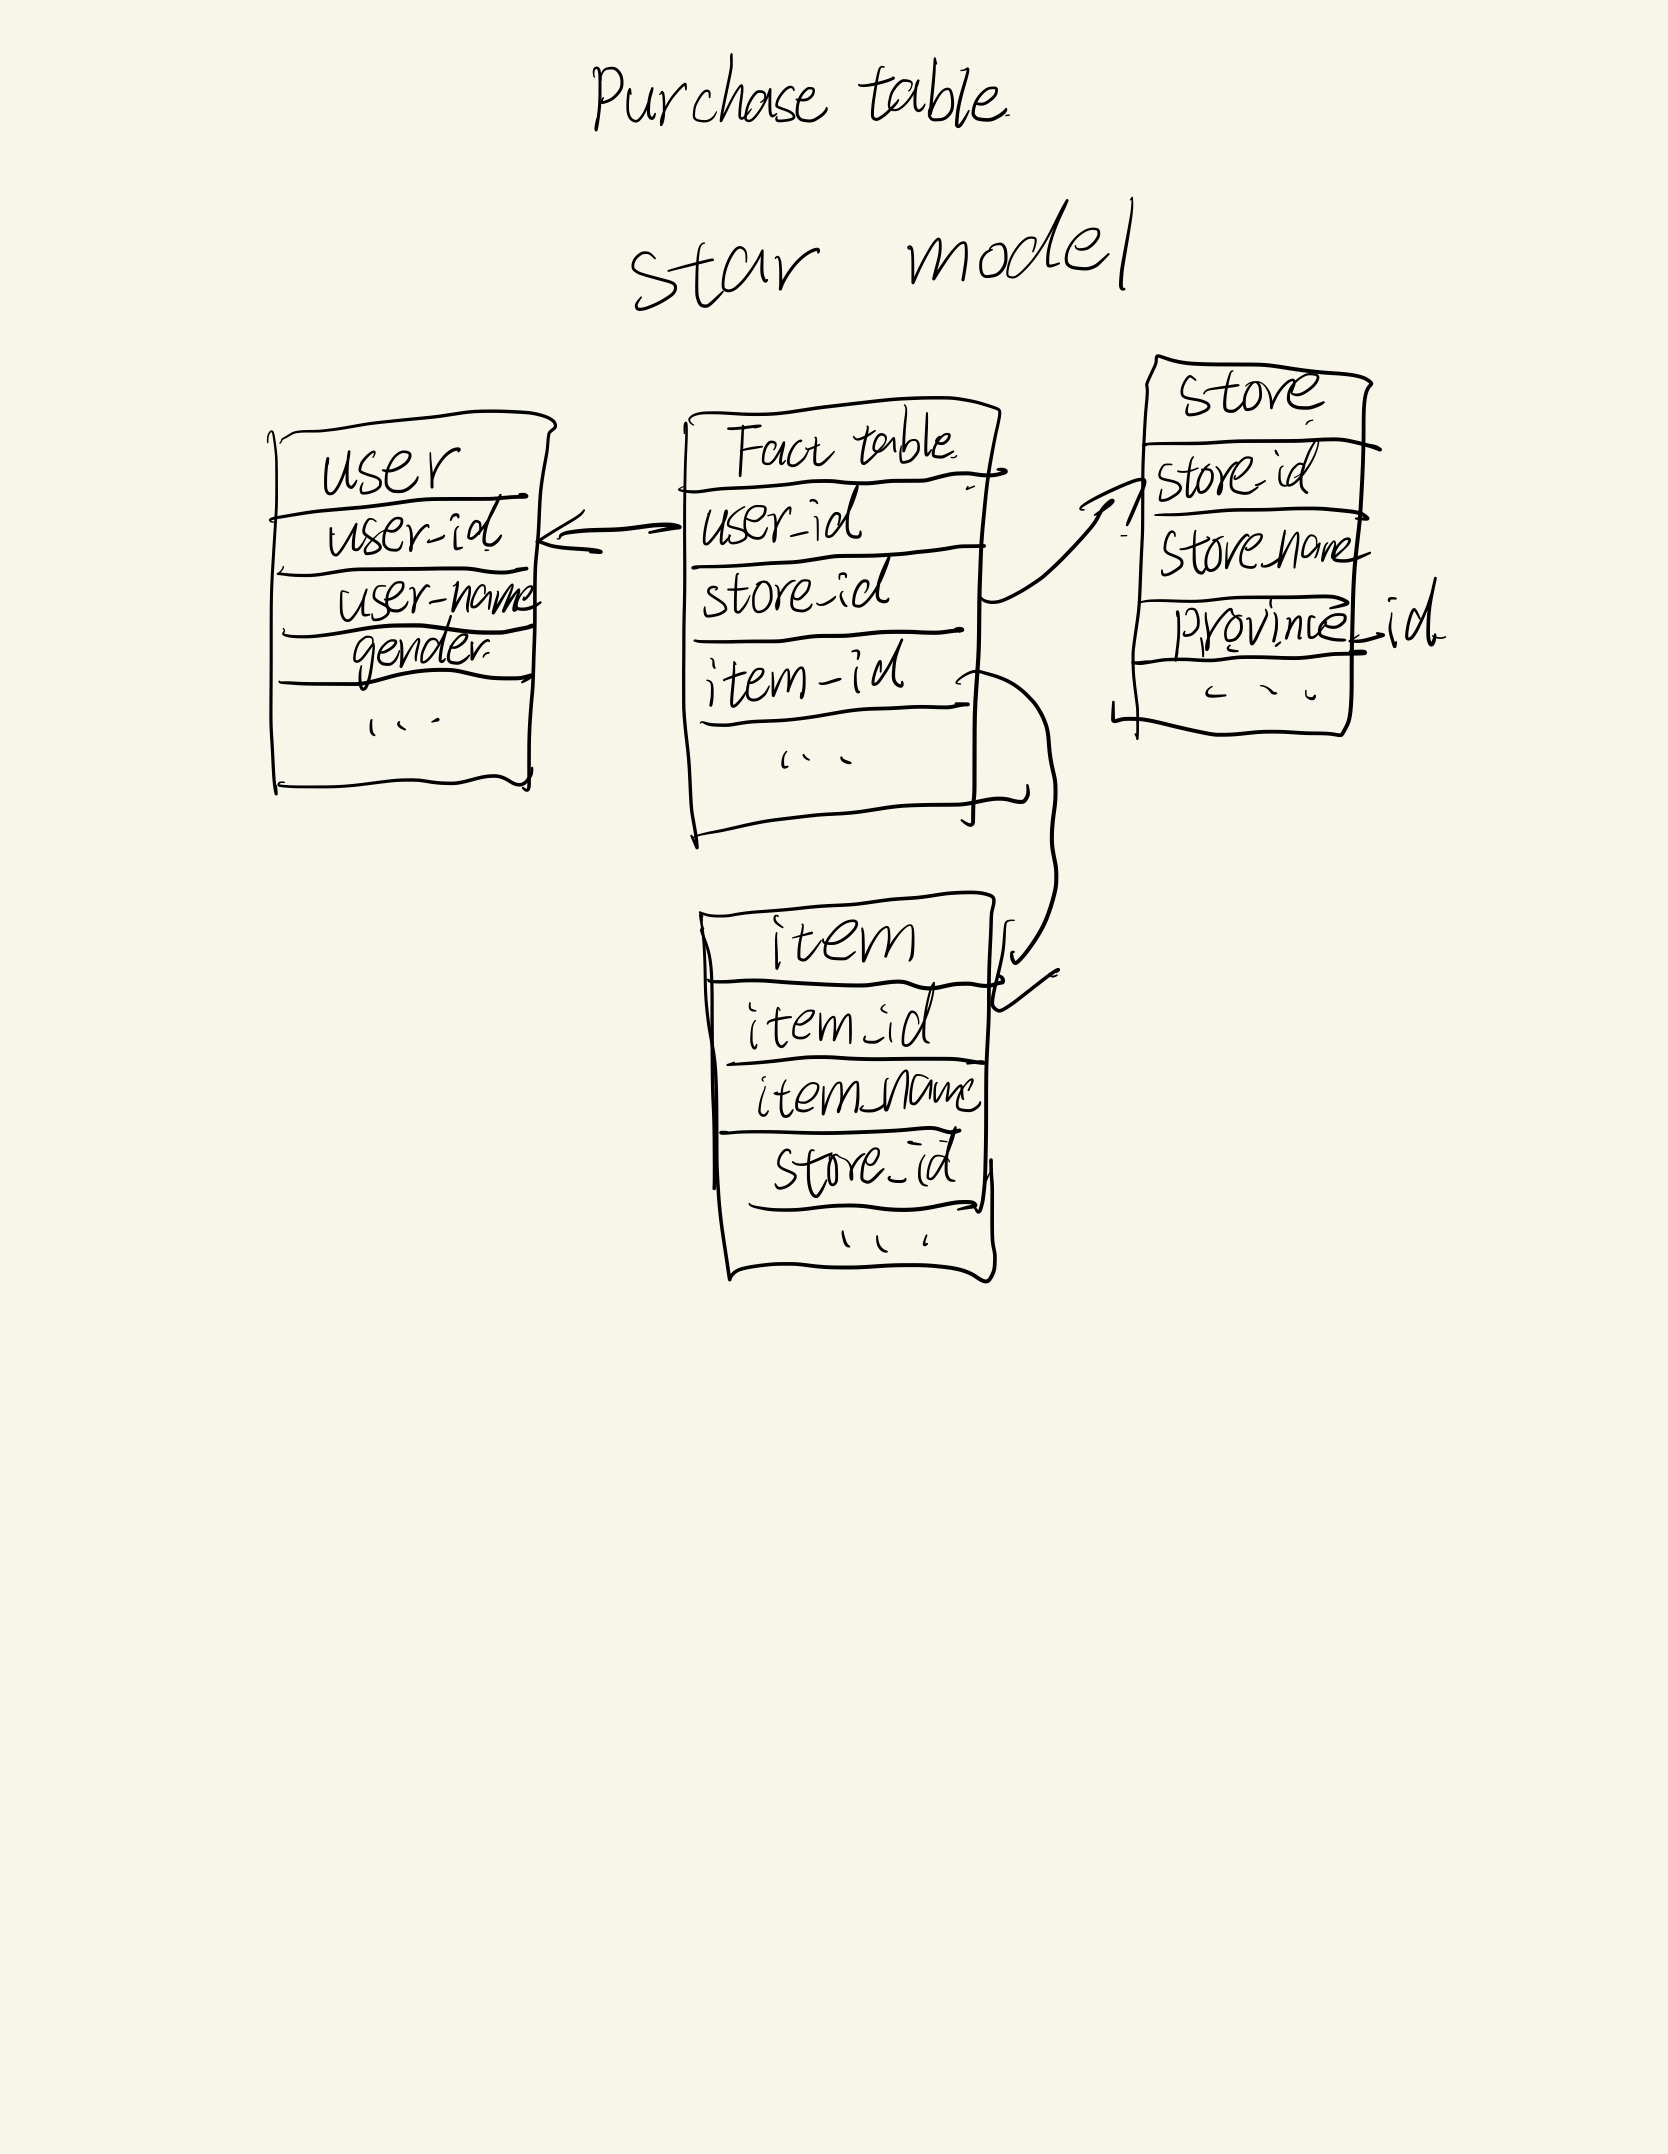 Purchase table
star model
user
user_id
user_name
gender
...
Fact table
user_id
store_id
item_id
...
store
store_id
store_name
province_id
...
item
item_id
item_name
store_id
...